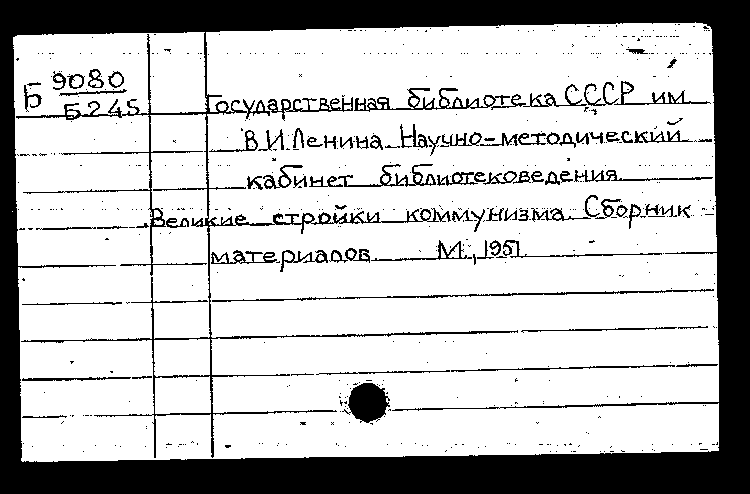 Б 9080
Б245
Государственная библиотека СССР им.
В.И.Ленина. Научно-методический
кабинет библиотековедения.
Великие стройки коммунизма. Сборник
материалов. М., 1951.